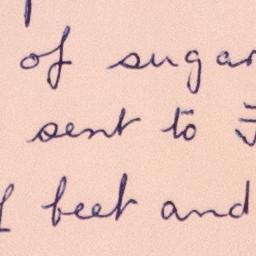 of sugar
sent to
beet and